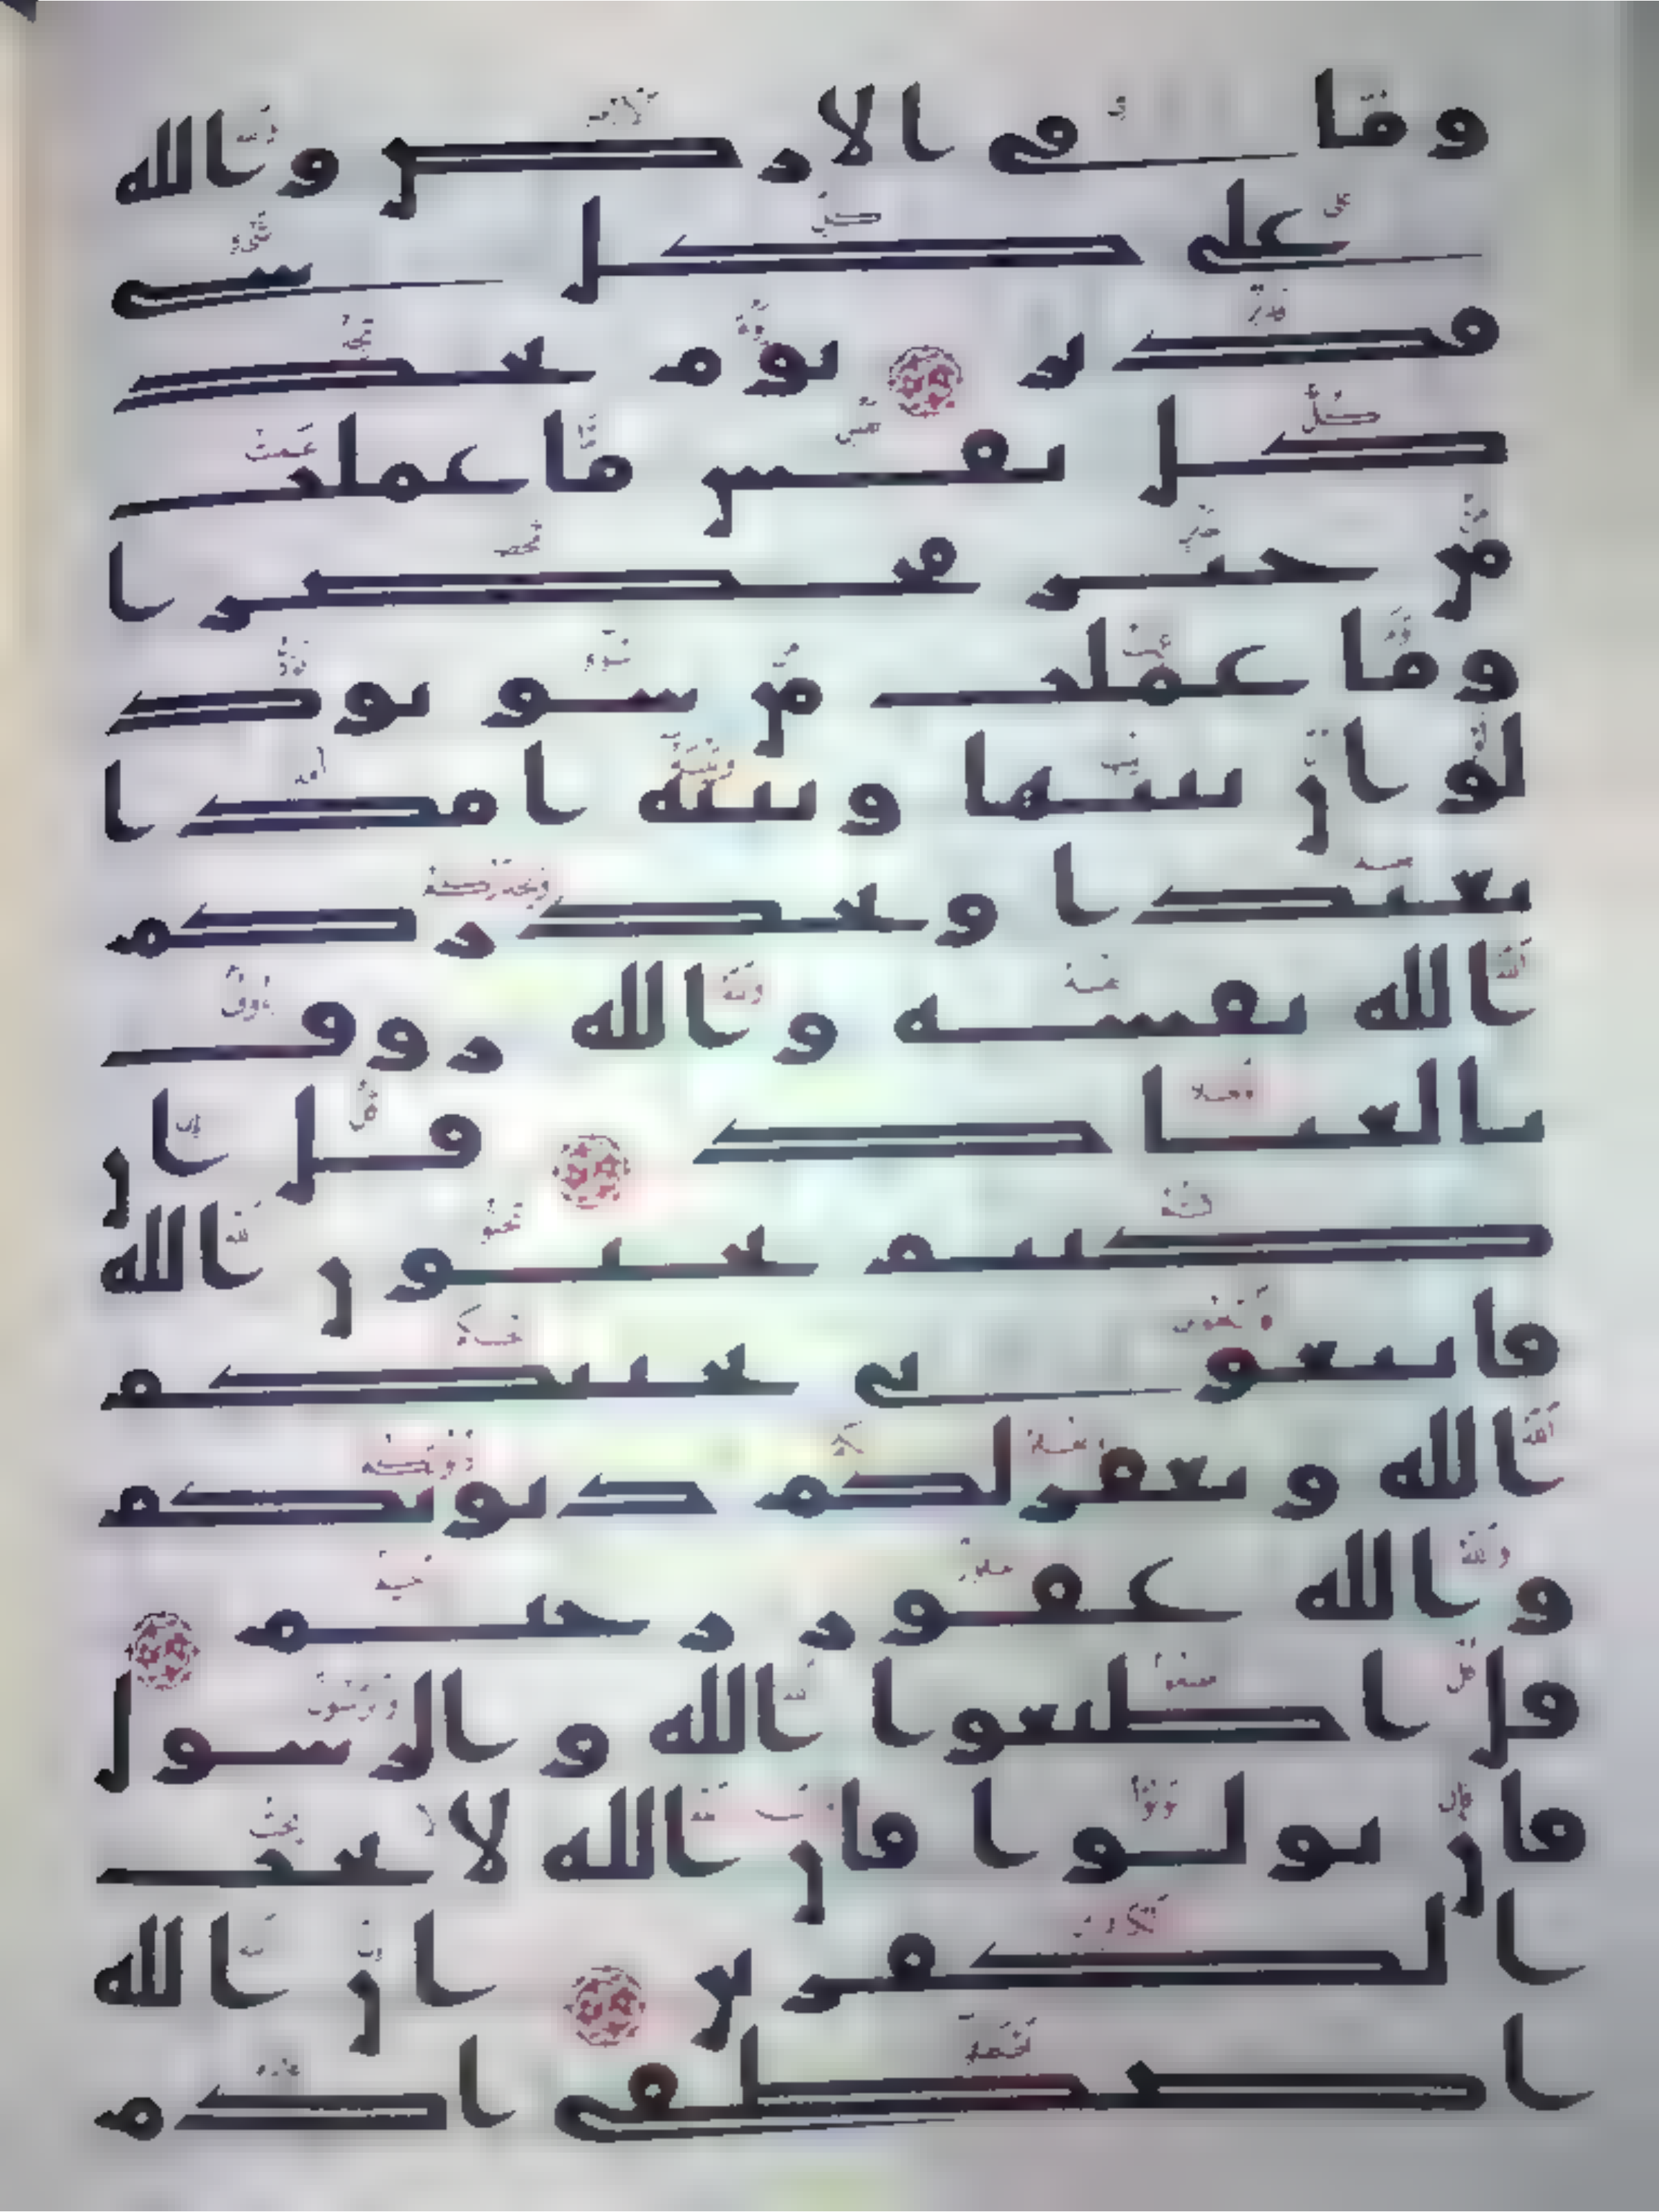 وما فى الارض والله
على كل شى
قدير يوم تجد
كل نفس ما عملت
من خير محضرا
وما عملت من سو تود
لو ان بينها وبينه امدا
بعيدا ويحذركم
الله نفسه والله روف
بالعباد قل ان
كنتم تحبون الله
فاتبعونى يحببكم
الله ويغفر لكم ذنوبكم
والله غفور رحيم
قل اطيعوا الله والرسول
فان تولوا فان الله لا يحب
الكفرين ان الله
اصطفى ادم